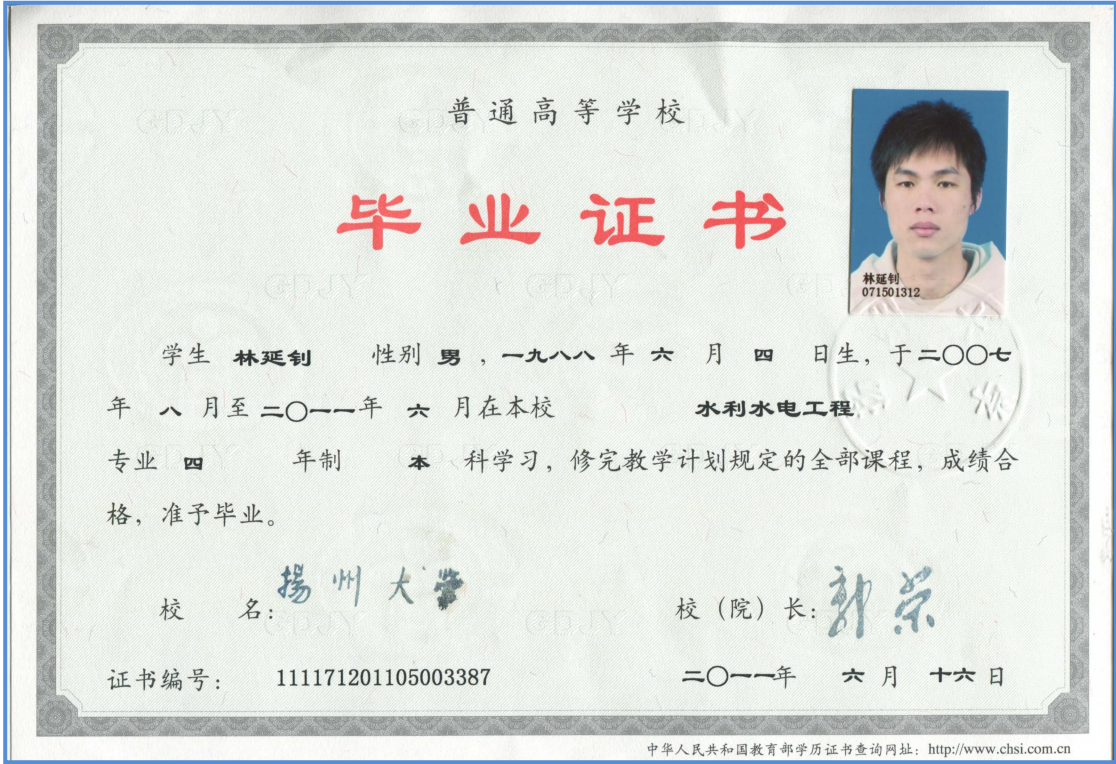 普通高等学校
毕业证书
林延钊
071501312
学生 林延钊 性别 男 ,一九八八 年 六 月 四 日生, 于 二〇〇七
年 八 月至 二〇一一年 六 月在本校 水利水电工程
专业 四 年制 本 科学习, 修完教学计划规定的全部课程, 成绩合
格, 准予毕业。
校 名: 揚州大学 校（院）长: 郭荣
证书编号: 111171201105003387 二〇一一年 六 月 十六 日
中华人民共和国教育部学历证书查询网址: http://www.chsi.com.cn